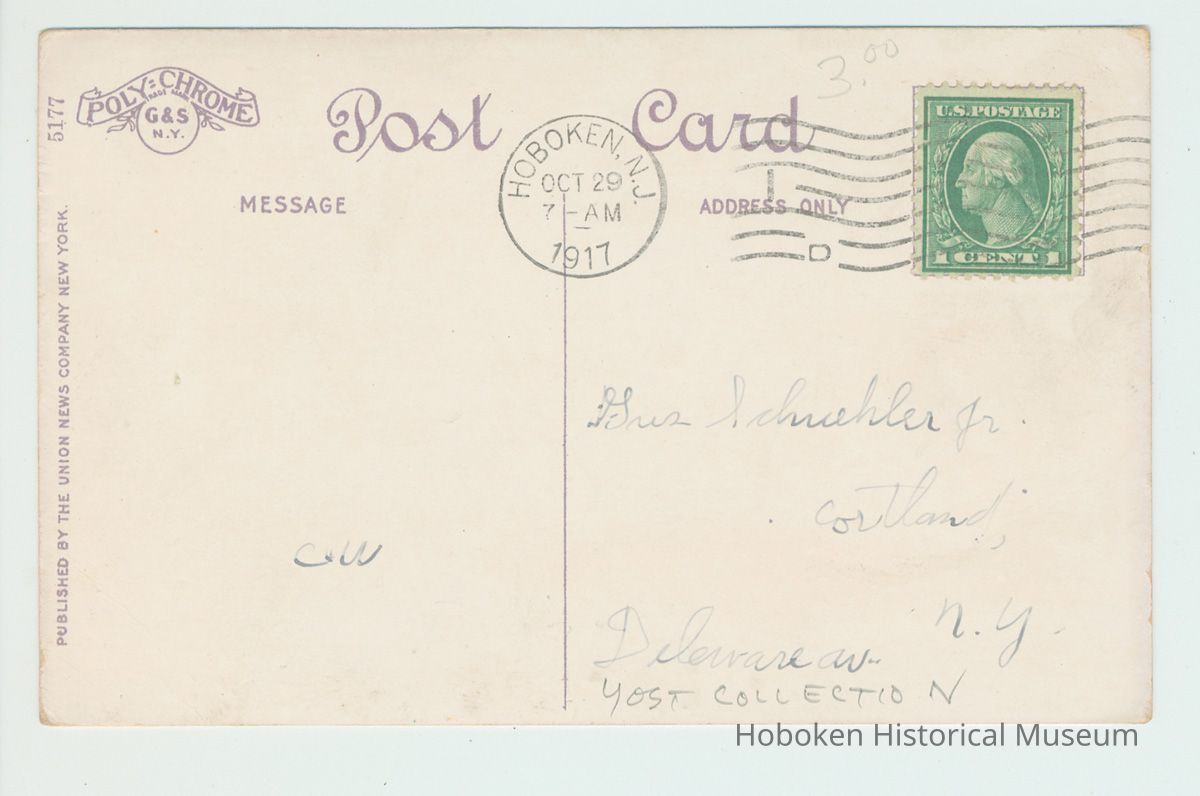 5177
POLY=CHROME
TRADE MARK
G&S
N.Y.
Post Card
3.00
MESSAGE
ADDRESS ONLY
HOBOKEN, N.J.
OCT 29
7-AM
1917
D
U.S. POSTAGE
1 CENT 1
PUBLISHED BY THE UNION NEWS COMPANY NEW YORK.
Gus Schuehler Jr.
Cortland,
N. Y.
Delaware av.
C W
YOST COLLECTION
Hoboken Historical Museum